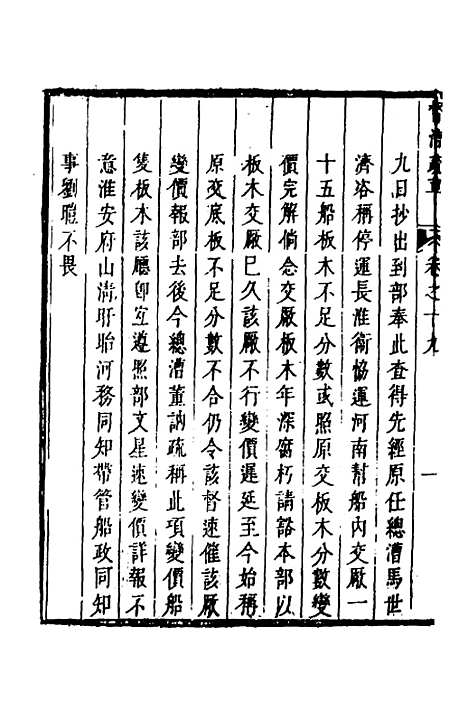 九日抄出到部奉此查得先經原任總漕馬世
濟咨稱停運長淮衛協運河南幫船內交廠一
十五船板木不足分數或照原交板木分數變
價完解倘念交廠板木年深腐朽請豁本部以
板木交廠已久該廠不行變價遲延至今始稱
原交底板不足分數不合仍令該督速催該廠
變價報部去後今總漕董訥疏稱此項變價船
隻板木該廳卽宜遵照部文星速變價詳報不
意淮安府山淸盱眙河務同知帶管船政同知
事劉暟不畏
卷之十九
一